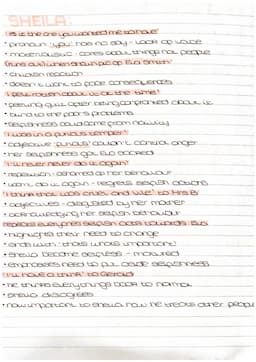 SHEILA:
'is it the one you wanted me to have'
• pronoun 'you' has no say - lack of voice
• materialistic - cares about things not people
(runs out) when shown pic of Eva Smith
• childish reaction
• doesn't want to face consequences
'I felt rotten about it at the time'
• feeling guilt after being confronted about it
• blind to the poor's problems
• selfishness could come from
'I was in a furious temper'
• adjective 'furious' couldn't control anger
• her selfishness got Eva sacked
'I'll never never do it again'
• repetition - ashamed of her behaviour
• won't do it again - regrets selfish actions
'I think that was cruel and vile' to Mrs B
• adjectives - disgusted by her mother
• acknowledging her selfish behaviour
repeats everyones selfish acts towards Eva
• highlights their need to change
• ends with 'that's what's important'
• Sheila became selfless - matured
• emphasises need to put aside selfishness
to Gerald
• he thinks everythings back to normal
• Sheila disagrees
• now important to Sheila how he treats other people